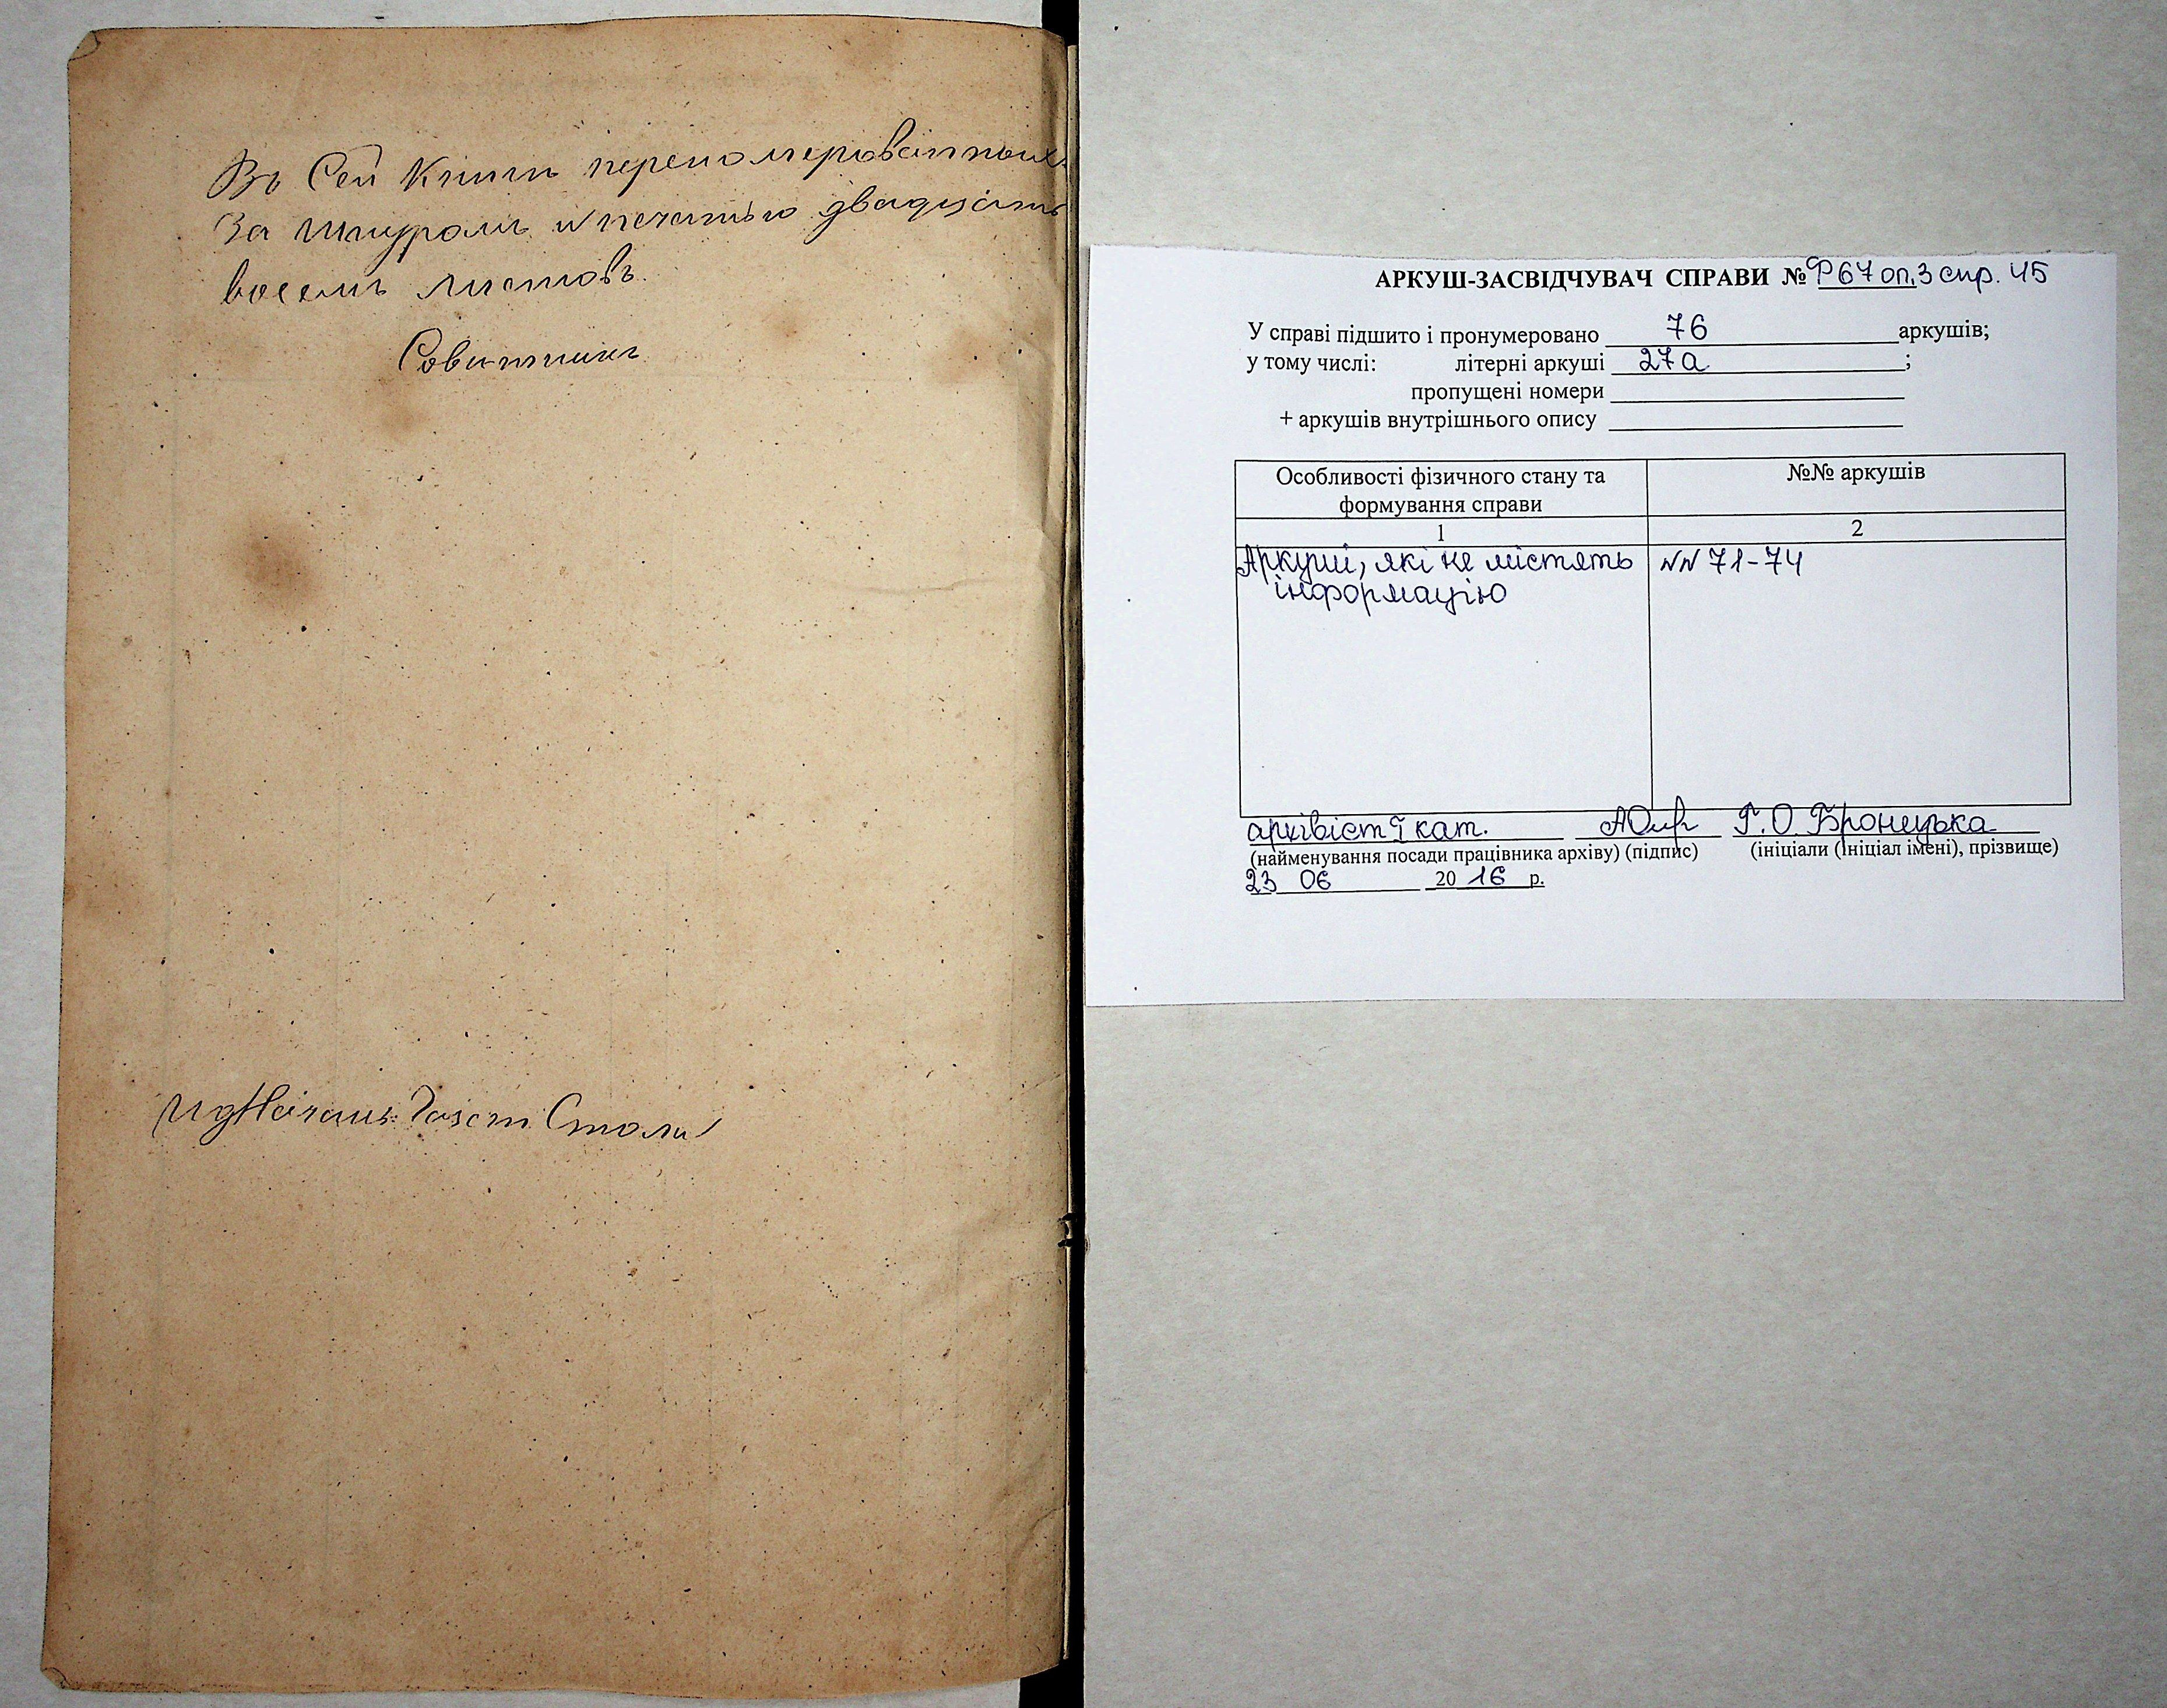 Въ Сей Книги перепомерованныхъ
За шнуромъ и печатью двадцать
восемь листовъ.
Советникъ
Столи
АРКУШ-ЗАСВІДЧУВАЧ СПРАВИ № Ф 67 оп.3 спр. 45
У справі підшито і пронумеровано 76 аркушів;
у тому числі: літерні аркуші 27а ;
пропущені номери
+ аркушів внутрішнього опису
Особливості фізичного стану та формування справи
№№ аркушів
1
2
Аркуші, які не містять
інформацію
NN 71-74
архівіст І кат. Г. О. Бронецька
(найменування посади працівника архіву) (підпис) (ініціали (ініціал імені), прізвище)
23 06 20 16 р.